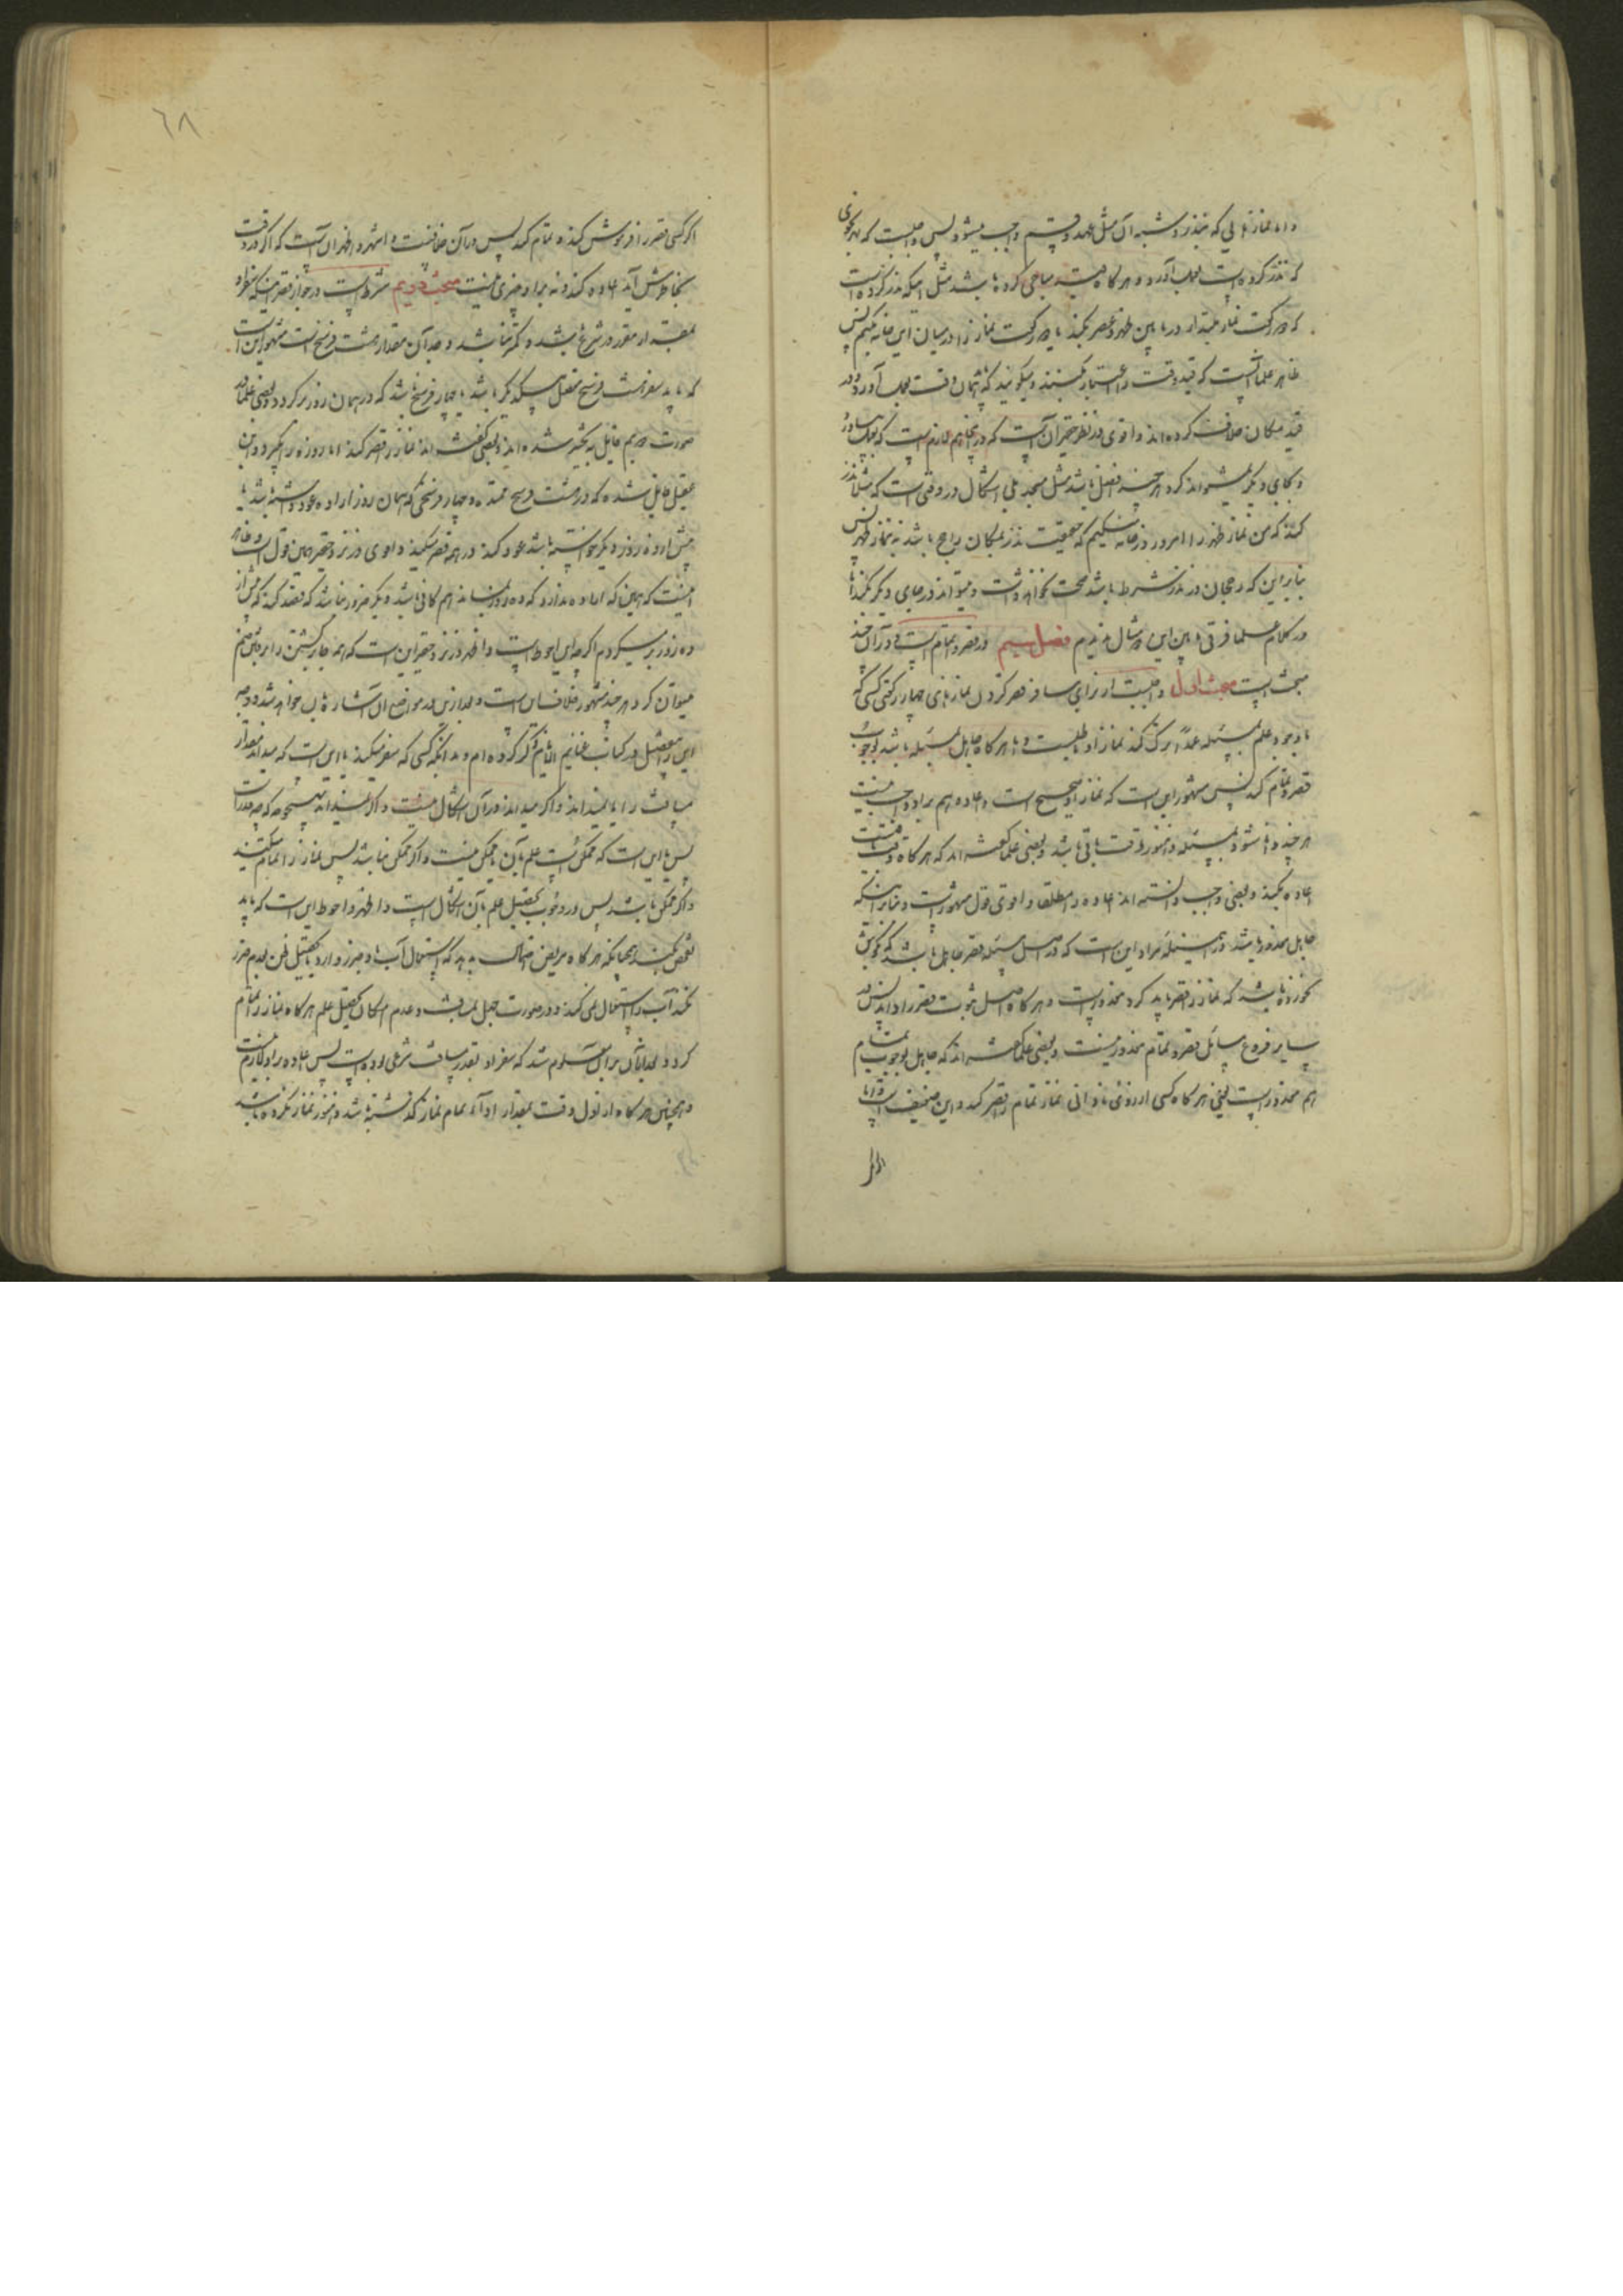 و اما نماز هایی که بنذر و شبه آن مثل عهد و قسم واجب میشود پس واجبست که بهر نحوی
که نذر کرده است بعمل آورد و هر گاه قید مباحی کرده باشد مثل اینکه نذر کرده است
که دو رکعت نماز در ما بین ظهر و عصر بکند یا دو رکعت نماز را در میان این خانه بکنم پس
ظاهر علما اینست که قید وقت را اعتبار میکنند و میگویند که باید در همان وقت بعمل آورد و در
قید مکان خلاف کرده اند و اقوی در نظر حقیر آن است که در اینجا هم لازم است که بعمل بیاورد
و بجای دیگر نمیتواند کرد هر چند افضل باشد مثل مسجد بلی اشکال در وقتی است که مثلا نذر
کند که من نماز ظهر را امروز در خانه میکنم که جمعیت نذر بمکان راجح باشد نه بنماز ظهر پس
بنابر این که رجحان در نذر شرط باشد صحت نخواهد داشت و میتواند در جای دیگر بکند اما
در کلام علما فرقی ما بین این دو مثال ندیدم فصل سیم در قصر و تمام است و در آن چند
مبحث است مبحث اول واجبست از برای مسافر قصر کردن نماز های چهار رکعتی کسی که
با وجود علم بمسئله عمدا ترک کند نماز او باطلست و اما هر گاه جاهل بمسئله باشد بوجوب
قصر و تمام کند پس مشهور این است که نماز او صحیح است و اعاده هم بر او واجب نیست
هر چند دانا شود بمسئله و هنوز وقت باقی باشد و بعضی علما گفته اند که هر گاه وقت باقیست
اعاده بکند و بعضی واجب دانسته اند اعاده را مطلقا و اقوی قول مشهور است و بنابر اینکه
جاهل معذور باشد در این مسئله مراد این است که در اصل مسئله قصر جاهل باشد که بگوشش
نخورده باشد که نماز را قصر باید کرد معذور است و هر گاه اصل ثبوت قصر را داند پس در
سایر فروع مسائل قصر و تمام معذور نیست و بعضی علما گفته اند که جاهل بوجوب تمام
هم معذور است یعنی هر گاه کسی از روی نادانی نماز تمام را قصر کند و این ضعیف است و اما
اگر
٦٨
اگر کسی قصر را فراموش کند و تمام کند پس در آن خلافست و اشهر و اظهر آن است که اگر در وقت
بخاطرش آید اعاده کند و نه بر او چیزی نیست مبحث دویم شرط است در جواز قصر اینکه سفر او
بقدر مقرر در شرع باشد و کمتر نباشد و حد آن مقدار هشت فرسخ است مشهور این است
که باید سفر هشت فرسخ متصل بیکدیگر باشد یا چهار فرسخ باشد که در همان روز بر گردد و بعضی علما در
صورت دویم قایل بتخییر شده اند و بعضی گفته اند نماز را قصر کند اما روزه را نگیرد و ابن
عقیل قایل شده که در هشت فرسخ ممتد و چهار فرسخی که همان روز اراده عود داشته باشد یا
پیش از ده روز دیگر خواسته باشد عود کند در همه قصر میکند و اقوی در نزد حقیر همین قول است و ظاهر
اینست که همین که اراده ندارد که ده روز بماند هم کافی باشد و دیگر ضرور نباشد که قصد کند که پیش از
ده روز بر میگردم اگر چه این احوط است و اظهر در نزد حقیر این است که همه جا برگشتن را بر رفتن ضم
میتوان کرد هر چند مشهور خلاف این است و بعد از این در مواضع آن اشاره بآن خواهد شد و وجه
این را مفصل در کتاب غنایم الایام ذکر کرده ام و بدانکه کسی که سفر میکند یا این است که میداند مقدار
مسافت را یا نمیداند و اگر میداند در آن اشکال نیست و اگر نمیداند
پس یا این است که ممکن است علم بآن یا ممکن نیست و اگر ممکن نباشد پس نماز را تمام میکند
و اگر ممکن باشد پس در وجوب تحصیل علم بآن اشکال است و اظهر و احوط این است که باید
تفحص بکند همچنانکه هر گاه مریض احتمال بدهد که استعمال آب باو ضرر دارد یا تحصیل ظن بعدم ضرر
نکند آب را استعمال نمی کند و در صورت جهل بمسافت و عدم امکان تحصیل علم هر گاه نماز را تمام
کرد و بعد از آن بر او معلوم شد که سفر او بقدر مسافت شرعی بوده است پس اعاده بر او لازم نیست
و همچنین هر گاه از اول وقت بمقدار اداء تمام نماز گذشته باشد و هنوز نماز نکرده باشد